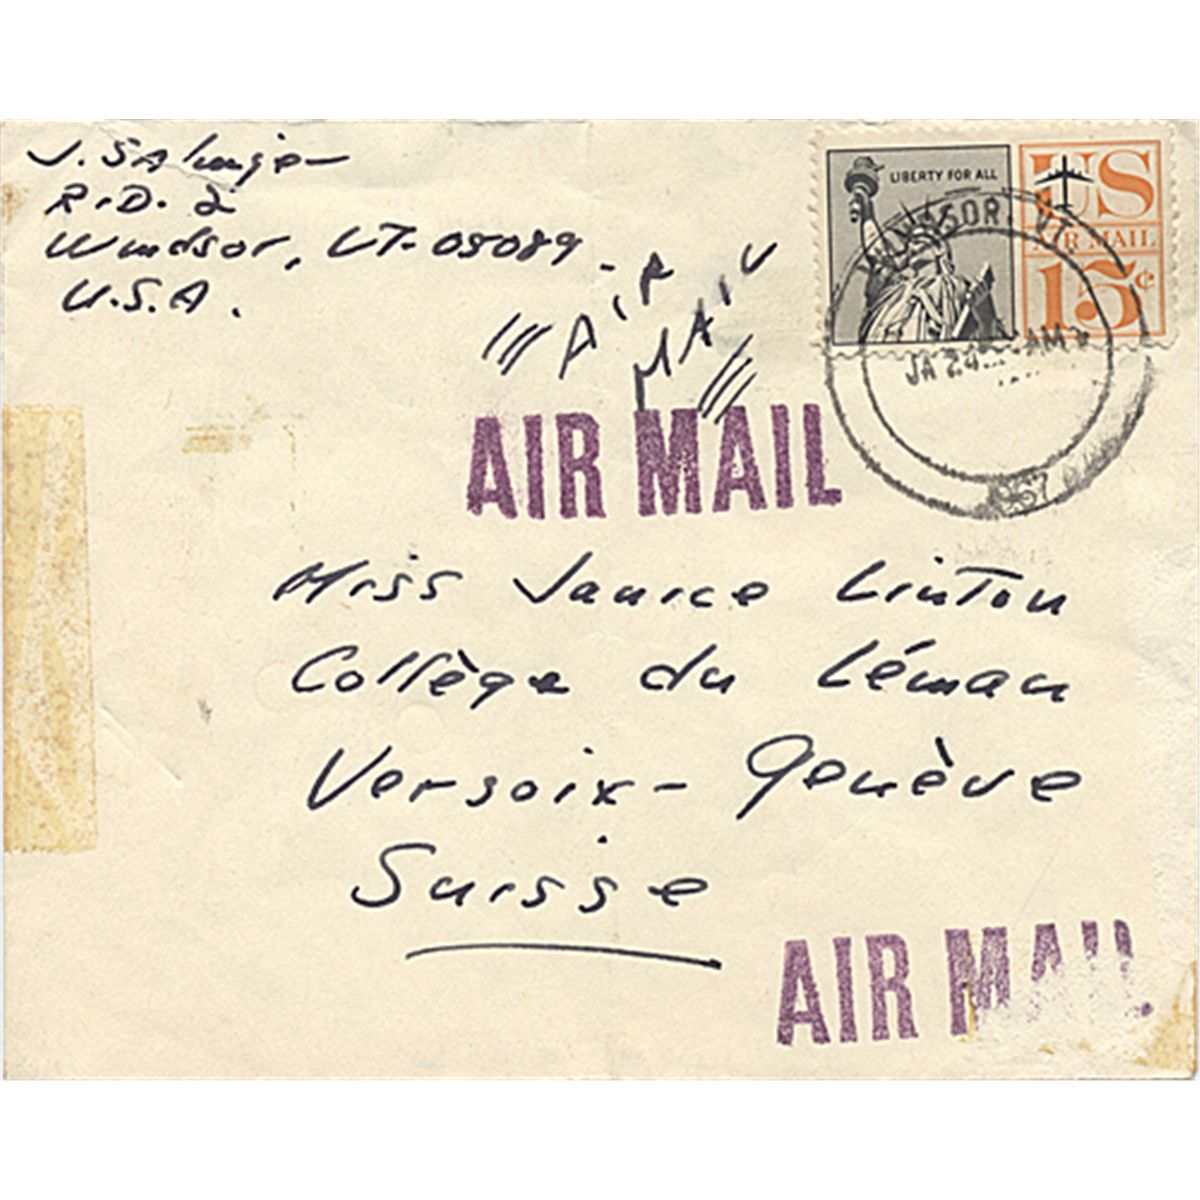 J. Salinger
R.D. 2
Windsor, VT- 05089
U.S.A.
AIR
MAIL
LIBERTY FOR ALL
US
AIR MAIL
15¢
WINDSOR, VT
JA 24 AM
1967
AIR MAIL
Miss Janice Linton
Collège du Léman
Versoix- Genève
Suisse
AIR MAIL